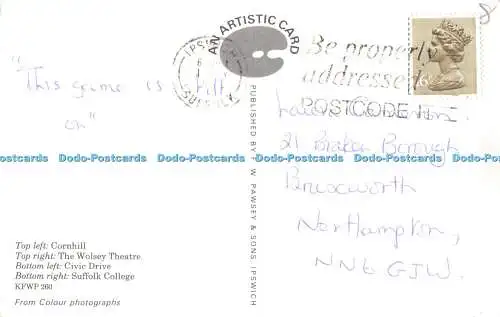 8
AN ARTISTIC CARD
IPSWICH
SUFFOLK
Be properly
addressed
POSTCODE IT
"This game is
still
on"
21 Braken Borough
Brixworth
Northampton,
NN6 GJW.
Dodo-Postcards Dodo-Postcards Dodo-Postcards Dodo-Postcards Dodo-Postcards
PUBLISHED BY W. PAWSEY & SONS, IPSWICH
Top left: Cornhill
Top right: The Wolsey Theatre
Bottom left: Civic Drive
Bottom right: Suffolk College
KFWP 260
From Colour photographs